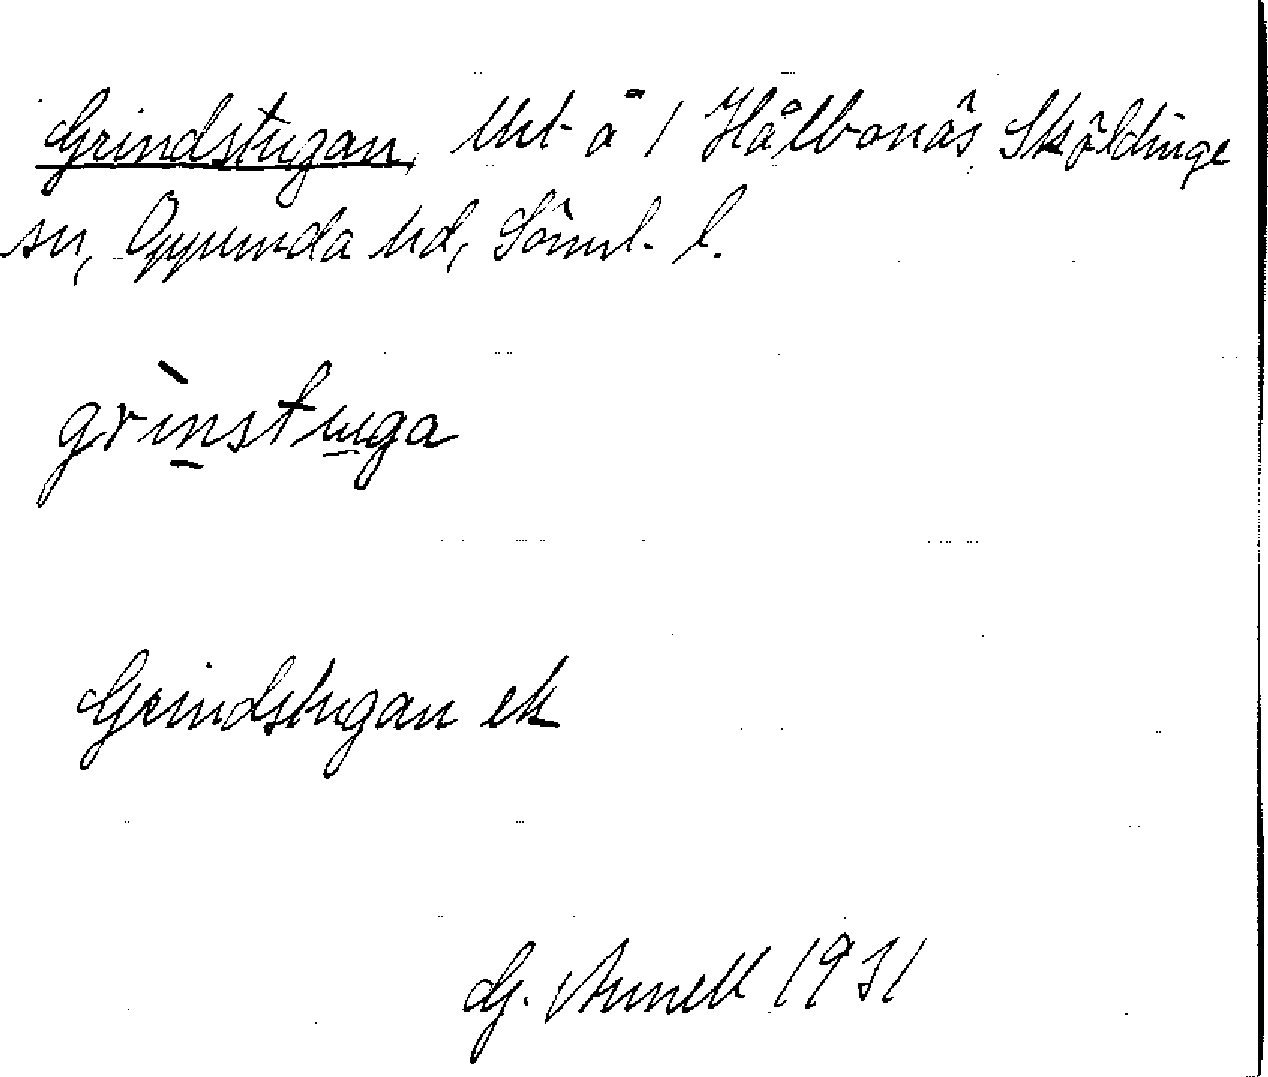 Grindstugan, lht å 1 Hålbonäs Sköldinge
sn, Oppunda hd, Söml. l.
grìnstuga
Grindstugan ek
G. Annell 1931